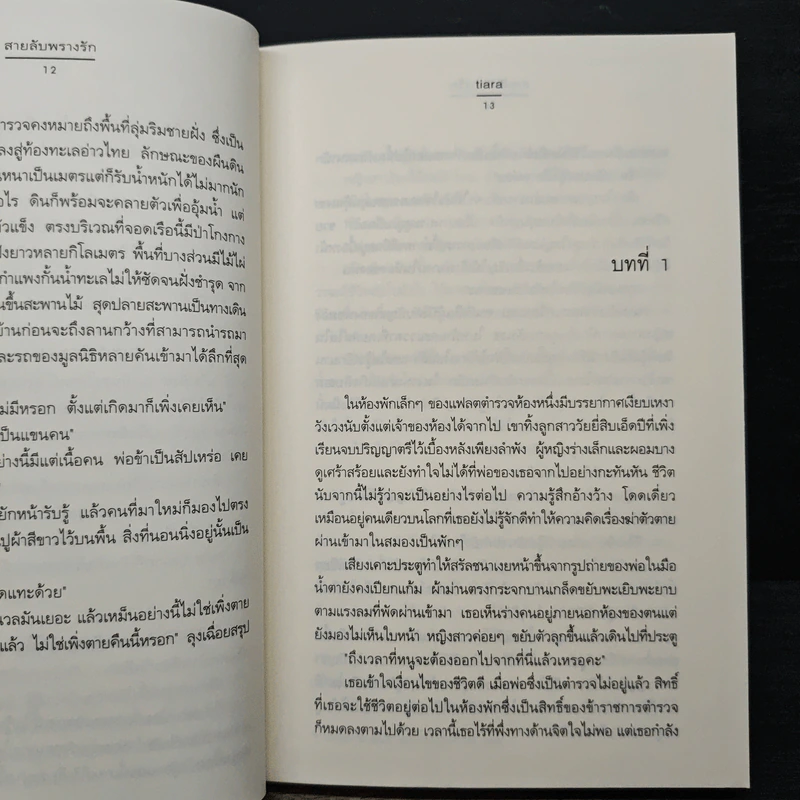 สายลับพรางรัก
12
ำรวจคงหมายถึงพื้นที่ลุ่มริมชายฝั่ง ซึ่งเป็น
ลงสู่ท้องทะเลอ่าวไทย ลักษณะของผืนดิน
นหนาเป็นเมตรแต่ก็รับน้ำหนักได้ไม่มากนัก
อไร ดินก็พร้อมจะคลายตัวเพื่ออุ้มน้ำ แต่
ตัวแข็ง ตรงบริเวณที่จอดเรือนี้มีป่าโกงกาง
ฝั่งยาวหลายกิโลเมตร พื้นที่บางส่วนมีไม้ไผ่
กำแพงกั้นน้ำทะเลไม่ให้ซัดจนฝั่งชำรุด จาก
นขึ้นสะพานไม้ สุดปลายสะพานเป็นทางเดิน
บ้านก่อนจะถึงลานกว้างที่สามารถนำรถมา
และรถของมูลนิธิหลายคันเข้ามาได้ลึกที่สุด
ไม่มีหรอก ตั้งแต่เกิดมาก็เพิ่งเคยเห็น"
เป็นแขนคน"
อย่างนี้มีแต่เนื้อคน พ่อข้าเป็นสัปเหร่อ เคย
ยักหน้ารับรู้ แล้วคนที่มาใหม่ก็มองไปตรง
ปูผ้าสีขาวไว้บนพื้น สิ่งที่นอนนิ่งอยู่นั้นเป็น
ดแทะด้วย"
นวลมันเยอะ แล้วเหม็นอย่างนี้ไม่ใช่เพิ่งตาย
แล้ว ไม่ใช่เพิ่งตายคืนนี้หรอก" ลุงเฉื่อยสรุป
tiara
13
บทที่ 1
ในห้องพักเล็กๆ ของแฟลตตำรวจห้องหนึ่งมีบรรยากาศเงียบเหงา
วังเวงนับตั้งแต่เจ้าของห้องได้จากไป เขาทิ้งลูกสาววัยยี่สิบเอ็ดปีที่เพิ่ง
เรียนจบปริญญาตรีไว้เบื้องหลังเพียงลำพัง ผู้หญิงร่างเล็กและผอมบาง
ดูเศร้าสร้อยและยังทำใจไม่ได้ที่พ่อของเธอจากไปอย่างกะทันหัน ชีวิต
นับจากนี้ไม่รู้ว่าจะเป็นอย่างไรต่อไป ความรู้สึกอ้างว้าง โดดเดี่ยว
เหมือนอยู่คนเดียวบนโลกที่เธอยังไม่รู้จักดีทำให้ความคิดเรื่องฆ่าตัวตาย
ผ่านเข้ามาในสมองเป็นพักๆ
เสียงเคาะประตูทำให้สรัลชนาเงยหน้าขึ้นจากรูปถ่ายของพ่อในมือ
น้ำตายังคงเปียกแก้ม ผ้าม่านตรงกระจกบานเกล็ดขยับพะเยิบพะยาบ
ตามแรงลมที่พัดผ่านเข้ามา เธอเห็นร่างคนอยู่ภายนอกห้องของตนแต่
ยังมองไม่เห็นใบหน้า หญิงสาวค่อยๆ ขยับตัวลุกขึ้นแล้วเดินไปที่ประตู
"ถึงเวลาที่หนูจะต้องออกไปจากที่นี่แล้วเหรอคะ"
เธอเข้าใจเงื่อนไขของชีวิตดี เมื่อพ่อซึ่งเป็นตำรวจไม่อยู่แล้ว สิทธิ์
ที่เธอจะใช้ชีวิตอยู่ต่อไปในห้องพักซึ่งเป็นสิทธิ์ของข้าราชการตำรวจ
ก็หมดลงตามไปด้วย เวลานี้เธอไร้ที่พึ่งทางด้านจิตใจไม่พอ แต่เธอกำลัง